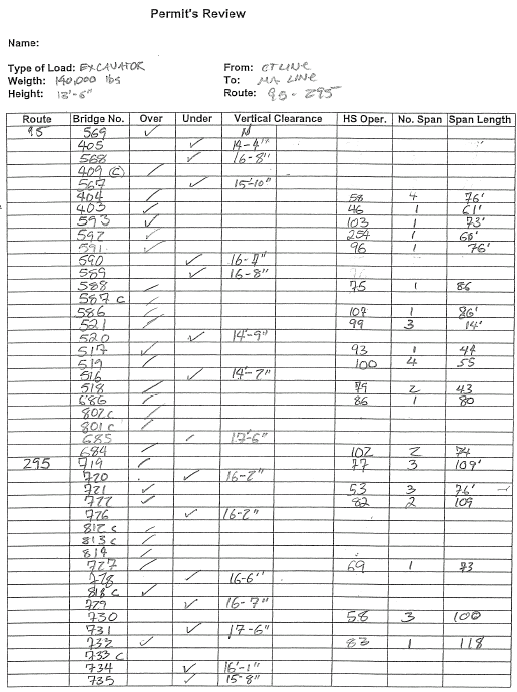 Permit's Review
Name:
Type of Load: EXCAVATOR From: CT LINE
Weigth: 140,000 lbs To: MA LINE
Height: 13'-6" Route: 95 - 295
Route Bridge No. Over Under Vertical Clearance HS Oper. No. Span Span Length
95 569 ✓
405 ✓ 14-4"
568 ✓ 16-8"
409 (C) ✓
567 ✓ 15'-10"
404 ✓ 58 4 76'
403 ✓ 46 1 61'
593 ✓ 103 1 73'
592 ✓ 254 1 60'
591 ✓ 96 1 76'
590 ✓
589 ✓ 16-8"
588 ✓ 75 1 86
587 C ✓
586 ✓ 107 1 86'
521 ✓ 99 3 14'
520 ✓ 14'-9"
517 ✓ 93 1 44
519 ✓ 100 4 55
516 ✓ 14'-2"
518 ✓ 79 2 43
686 ✓ 86 1 80
802 C ✓
801 C ✓
685 ✓ 17-6"
684 ✓ 102 2 74
295 719 ✓ 77 3 109'
720 ✓ 16-2"
721 ✓ 53 3 76'
722 ✓ 82 2 109
726 ✓ 16-2"
812 C ✓
813 C ✓
814 ✓
727 ✓ 69 1 73
728 ✓ 16-6"
818 C ✓
729 ✓ 16-7"
730 58 3 100
731 ✓ 17-6"
732 ✓ 83 1 118
733 C
734 ✓ 16'-1"
735 ✓ 15-8"